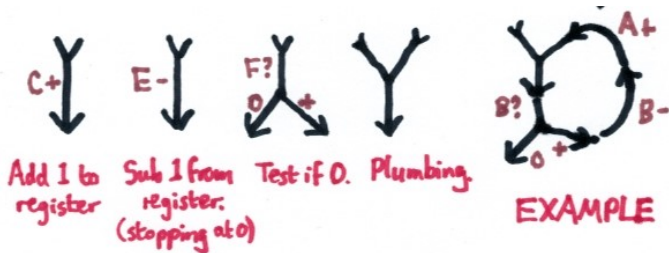 C+
E-
F?
0 +
A+
B?
B-
0 +
Add 1 to
register
Sub 1 from
register.
(stopping at 0)
Test if 0.
Plumbing.
EXAMPLE